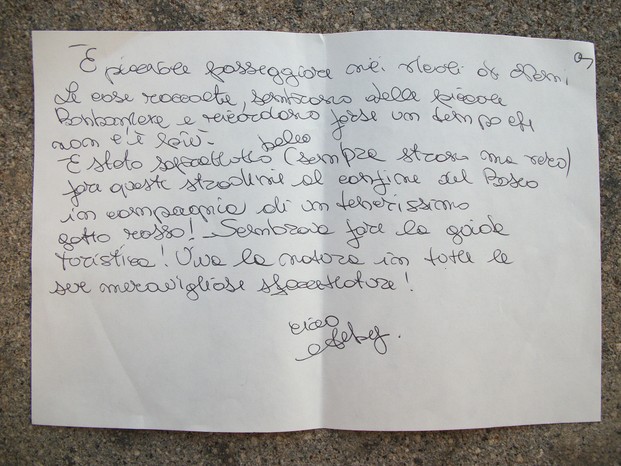 È piacevole passeggiare nei vicoli di
le case raccolte, sembrano delle piccole
Bomboniere e ricordano forse un tempo che
non c'è più.
bello
È stato soprattutto (sempre strano ma vero)
fra queste stradine al confine del Bosco
in compagnia di un tenerissimo
gatto rosso! Sembrava fare la guida
turistica! Viva la natura in tutte le
sue meravigliose sfaccettature!
ciao